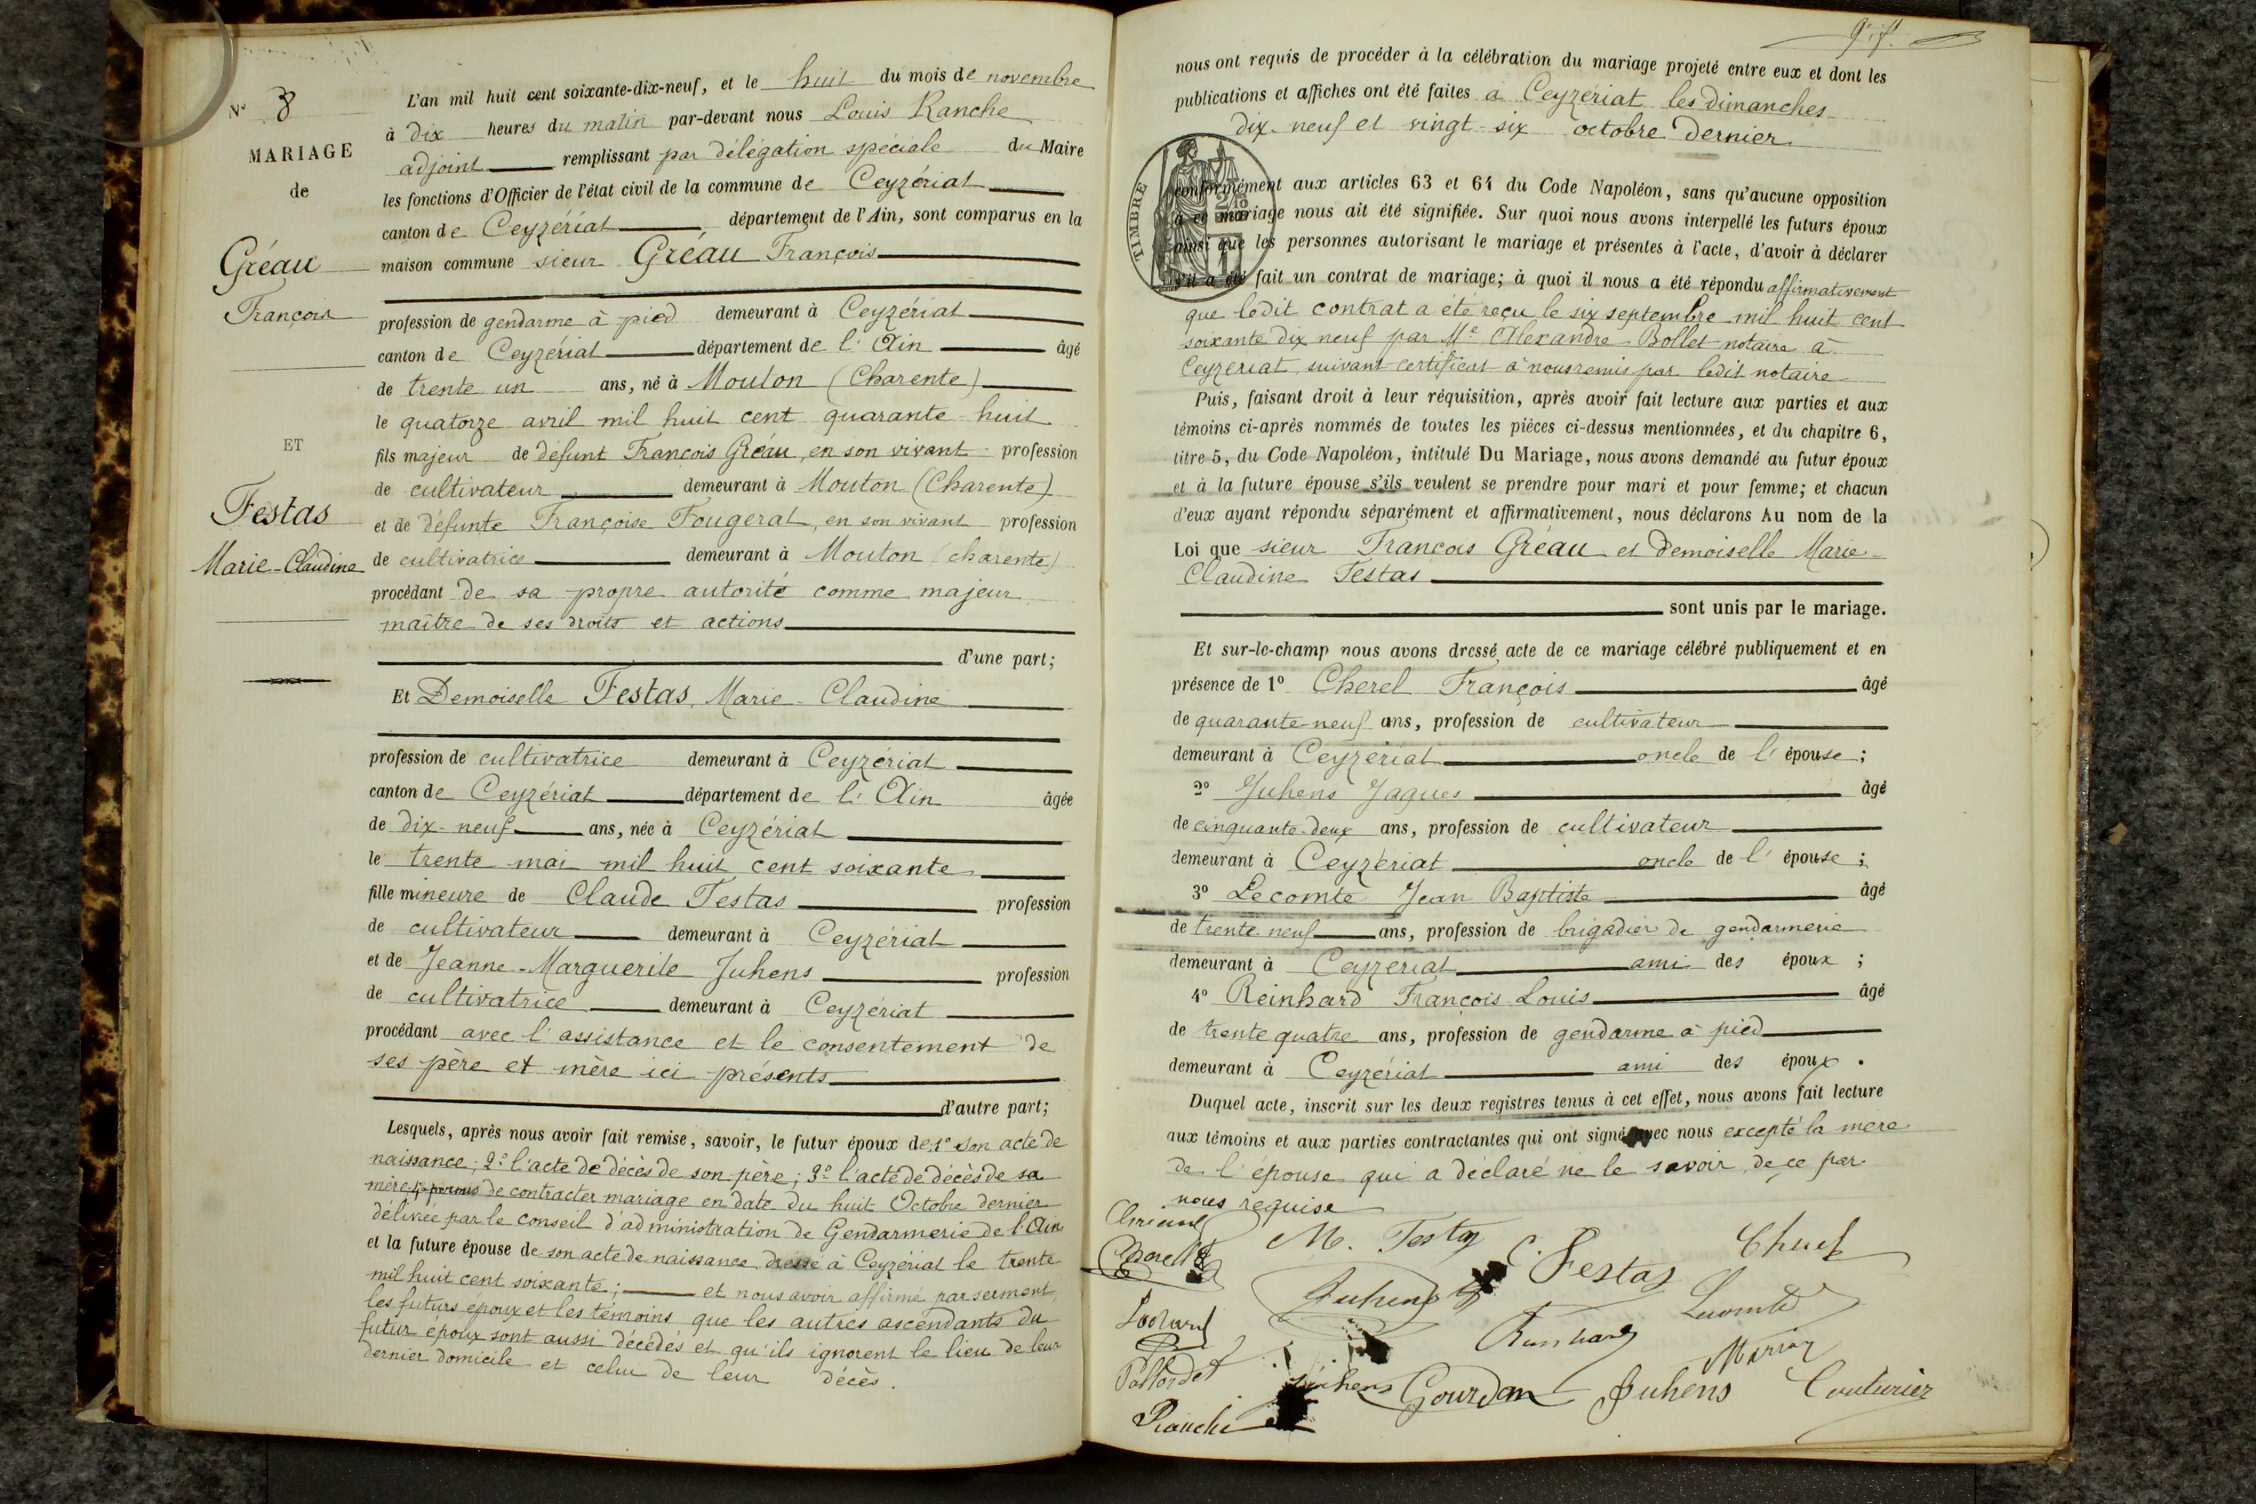 N° 8
MARIAGE
de
Gréau
François
ET
Festas
Marie-Claudine
L'an mil huit cent soixante-dix-neuf, et le huit du mois de novembre
à dix heures du matin par-devant nous Louis Ranche
adjoint remplissant par délégation spéciale du Maire
les fonctions d'Officier de l'état civil de la commune de Ceyzériat
canton de Ceyzériat, département de l'Ain, sont comparus en la
maison commune sieur Gréau François
profession de gendarme à pied demeurant à Ceyzériat
canton de Ceyzériat département de l'Ain âgé
de trente un ans, né à Mouton (Charente)
le quatorze avril mil huit cent quarante huit
fils majeur de défunt François Gréau, en son vivant profession
de cultivateur demeurant à Mouton (Charente)
et de défunte Françoise Fougerat, en son vivant profession
de cultivatrice demeurant à Mouton (charente)
procédant de sa propre autorité comme majeur
maître de ses droits et actions
d'une part;
Et Demoiselle Festas, Marie-Claudine
profession de cultivatrice demeurant à Ceyzériat
canton de Ceyzériat département de l'Ain âgée
de dix-neuf ans, née à Ceyzériat
le trente mai mil huit cent soixante
fille mineure de Claude Festas profession
de cultivateur demeurant à Ceyzériat
et de Jeanne-Marguerite Juhens profession
de cultivatrice demeurant à Ceyzériat
procédant avec l'assistance et le consentement de
ses père et mère ici présents
d'autre part;
Lesquels, après nous avoir fait remise, savoir, le futur époux de 1° son acte de
naissance; 2° l'acte de décès de son père; 3° l'acte de décès de sa
mère de contracter mariage en date du huit Octobre dernier
délivrée par le conseil d'administration de Gendarmerie de l'Ain
et la future épouse de son acte de naissance dressé à Ceyzériat le trente
mil huit cent soixante; et nous avoir affirmé par serment,
les futurs époux et les témoins que les autres ascendants du
futur époux sont aussi décédés et qu'ils ignorent le lieu de leur
dernier domicile et celui de leur décès.
nous ont requis de procéder à la célébration du mariage projeté entre eux et dont les
publications et affiches ont été faites à Ceyzériat les dimanches
dix-neuf et vingt-six octobre dernier
TIMBRE
conformément aux articles 63 et 64 du Code Napoléon, sans qu'aucune opposition
à ce mariage nous ait été signifiée. Sur quoi nous avons interpellé les futurs époux
ainsi que les personnes autorisant le mariage et présentes à l'acte, d'avoir à déclarer
s'il a été fait un contrat de mariage; à quoi il nous a été répondu affirmativement
que ledit contrat a été reçu le six septembre mil huit cent
soixante dix neuf par Me Alexandre Bollet notaire à
Ceyzériat suivant certificat à nous remis par ledit notaire
Puis, faisant droit à leur réquisition, après avoir fait lecture aux parties et aux
témoins ci-après nommés de toutes les pièces ci-dessus mentionnées, et du chapitre 6,
titre 5, du Code Napoléon, intitulé Du Mariage, nous avons demandé au futur époux
et à la future épouse s'ils veulent se prendre pour mari et pour femme; et chacun
d'eux ayant répondu séparément et affirmativement, nous déclarons Au nom de la
Loi que sieur François Gréau et Demoiselle Marie-
Claudine Festas
sont unis par le mariage.
Et sur-le-champ nous avons dressé acte de ce mariage célébré publiquement et en
présence de 1° Cherel François âgé
de quarante-neuf ans, profession de cultivateur
demeurant à Ceyzériat oncle de l'épouse;
2° Juhens Jaques âgé
de cinquante-deux ans, profession de cultivateur
demeurant à Ceyzériat oncle de l'épouse;
3° Lecomte Jean Baptiste âgé
de trente neuf ans, profession de brigadier de gendarmerie
demeurant à Ceyzériat ami des époux;
4° Reinhard François Louis âgé
de trente quatre ans, profession de gendarme à pied
demeurant à Ceyzériat ami des époux.
Duquel acte, inscrit sur les deux registres tenus à cet effet, nous avons fait lecture
aux témoins et aux parties contractantes qui ont signé avec nous excepté la mère
de l'épouse qui a déclaré ne le savoir, de ce par
nous requise
M. Festas
C. Festas
Juhens
Lecomte
Reinhard
Gourdon
Juhens
Couturier